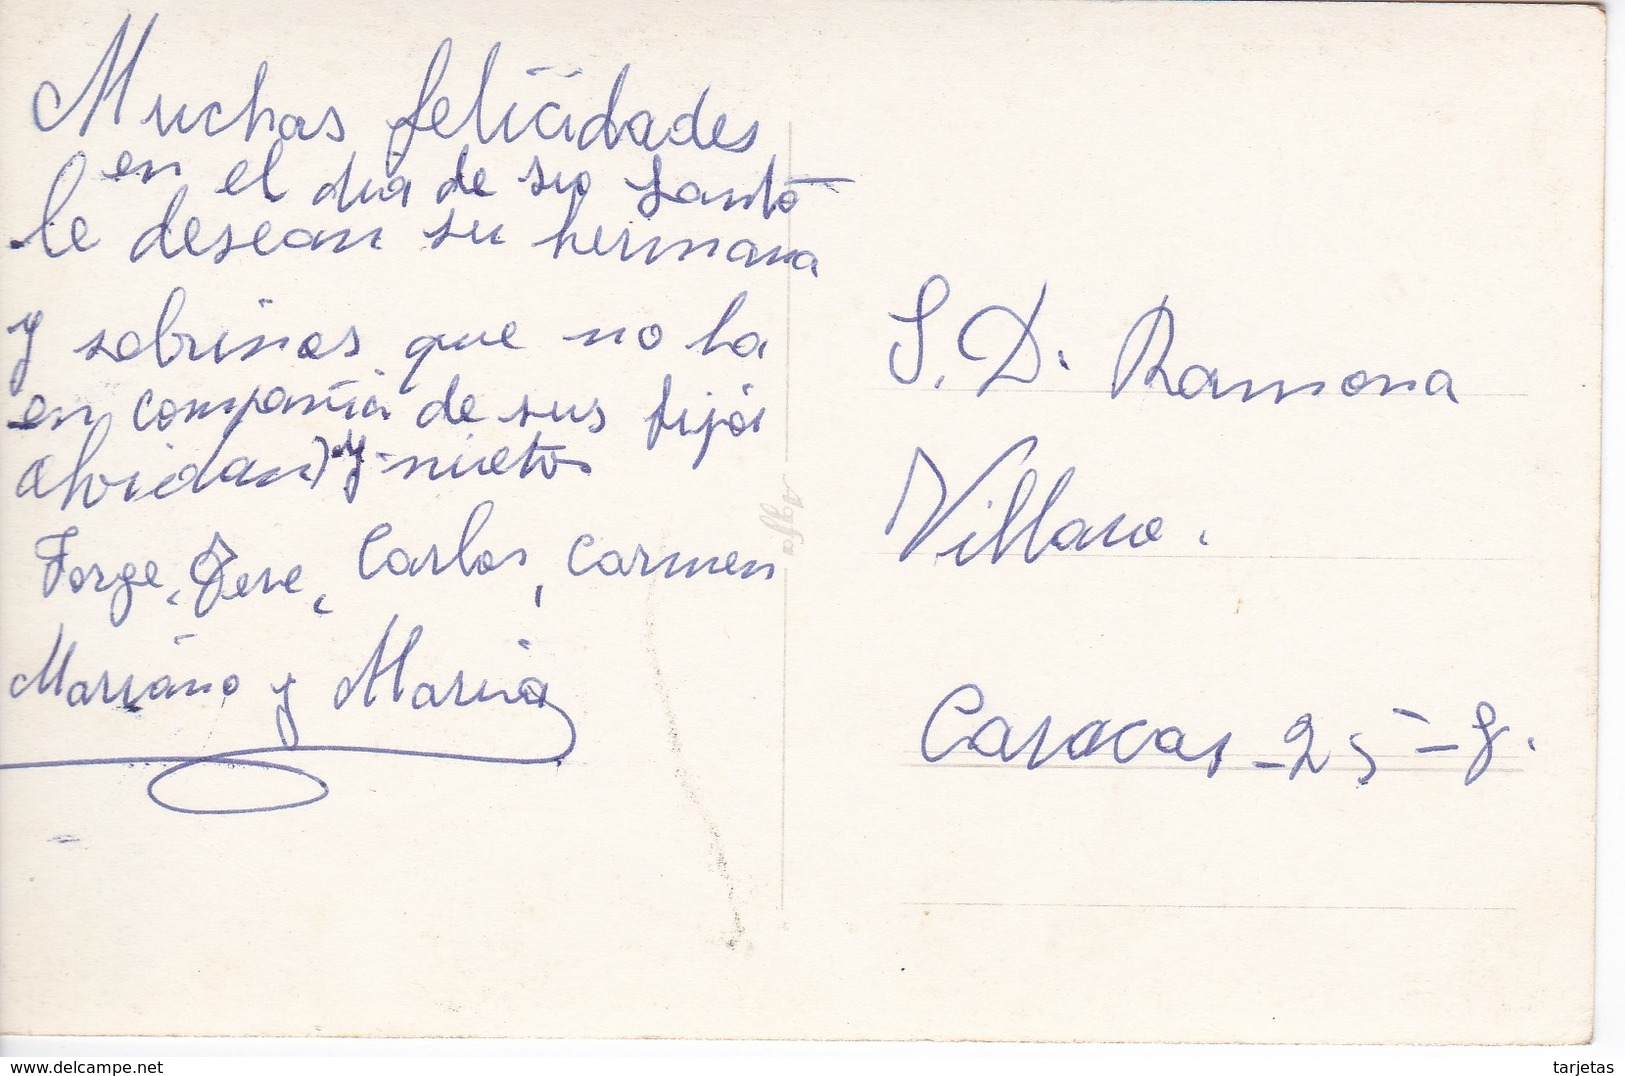 Muchas felicidades
en el dia de sus santo
le desean su hermana
y sobrinos que no la
en compañia de sus hijos
olvidan) y nietos
Jorge, Jere, Carlos, Carmen
Mariano y Maria
Agfa
S. D. Ramona
Villaro.
Caracas - 25 - 8.
www.delcampe.net
tarjetas